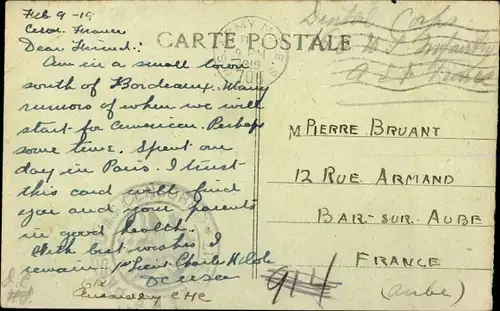 Feb 9-19
France
Dear Friend:
Am in a small town
south of Bordeaux. Many
rumors of when we will
start for American. Perhaps
some time. Spent one
day in Paris. I trust
this card will find
you and your parents
in good health.
With best wishes I
remain 1st Lieut. Charles
CARTE POSTALE
Dental Corps
Infantry
M PIERRE BRUANT
12 RUE ARMAND
BAR-SUR-AUBE
FRANCE
(Aube)
914